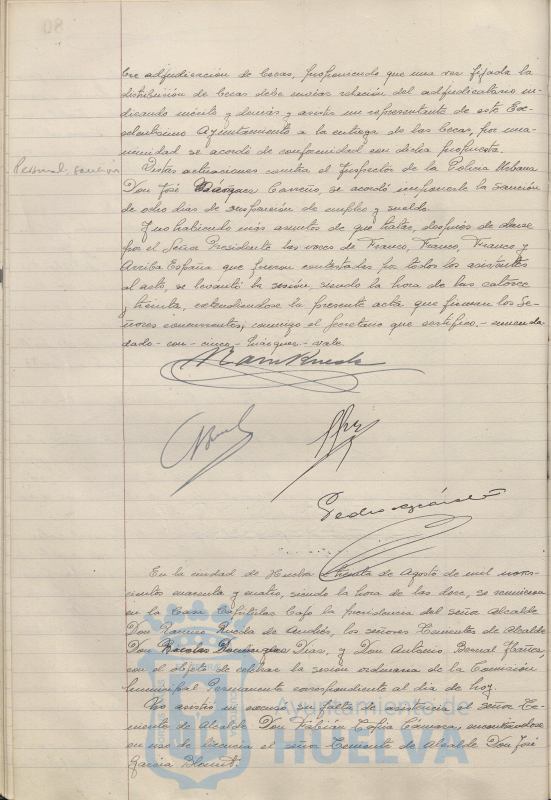 bre adjudicación de becas, proponiendo que una vez fijada la
distribución de becas debe enviar relación del adjudicatario in-
dicando mérito y demás y asista un representante de este Ex-
celentísimo Ayuntamiento a la entrega de las becas, por una-
nimidad se acordó de conformidad con dicha propuesta.
Personal, sanción
Vistas actuaciones contra el Inspector de la Policía Urbana
Don José Márquez Carreño, se acordó imponerle la sanción
de ocho días de suspensión de empleo y sueldo.
Y no habiendo más asuntos de que tratar, después de darse
por el Señor Presidente las voces de Franco, Franco, Franco y
Arriba España que fueron contestadas por todos los asistentes
al acto, se levantó la sesión, siendo la hora de las catorce
y treinta, extendiéndose la presente acta que firman los Se-
ñores concurrentes, conmigo el Secretario que certifico. - enmenda-
dado - con - cinco - Márquez - vale
En la ciudad de Huelva a treinta de Agosto de mil nove-
cientos cuarenta y cuatro, siendo la hora de las doce, se reunieron
en la Casa Capitular bajo la presidencia del señor Alcalde
Don Ramiro Rueda de Andrés, los señores Tenientes de Alcalde
Don Nicolás Domínguez Díaz, y Don Antonio Bernal Yáñez,
con el objeto de celebrar la sesión ordinaria de la Comisión
Municipal Permanente correspondiente al día de hoy.
No asistió ni excusó su falta de asistencia el señor Te-
niente de Alcalde Don Fabián Tafira Cámara, encontrándose
en uso de licencia el señor Teniente de Alcalde Don José
García
Ayuntamiento de
HUELVA